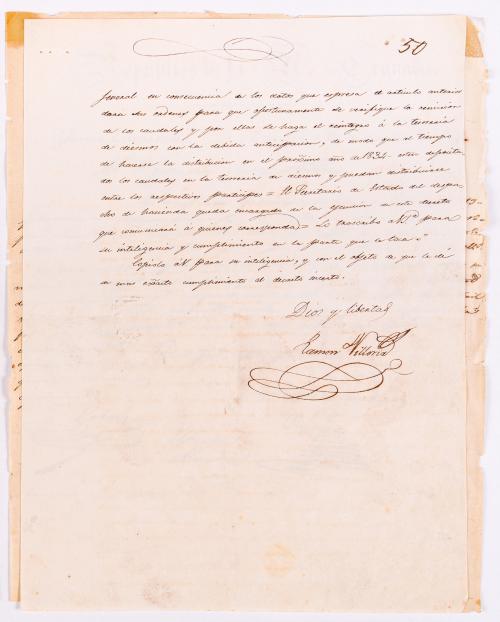 50
general en consecuencia de los datos que espresa el articulo anterior
dara sus ordenes para que oportunamente se verifique la remision
de los caudales y por ellas se haga el reintegro á la tesoreria
de diesmos con la debida anticipacion, de modo que al tiempo
de hacerse la distribución en el proximo año de 1834 esten deposita-
dos los caudales en la tesoreria de diesmos y puedan distribuirse
entre los respectivos participes = El Secretario de Estado del despa-
cho de hacienda queda encargado de la ejecucion de este decreto
que comunicará a quienes corresponda = Lo trascribo a V. para
su inteligencia y cumplimiento en la parte que le toca."
Copiolo a V para su inteligencia, y con el objeto de que le dé
su mas exacto cumplimiento al decreto inserto.
Dios y libertad
Ramon